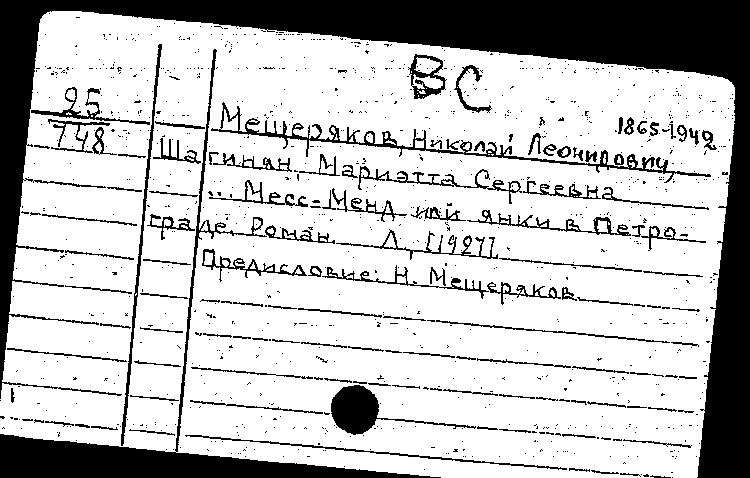 ВС
25
748
1865-1942
Мещеряков, Николай Леонидович,
Шагинян, Мариэтта Сергеевна
... Месс-Менд или янки в Петро-
граде. Роман. Л., [1927].
Предисловие: Н. Мещеряков.